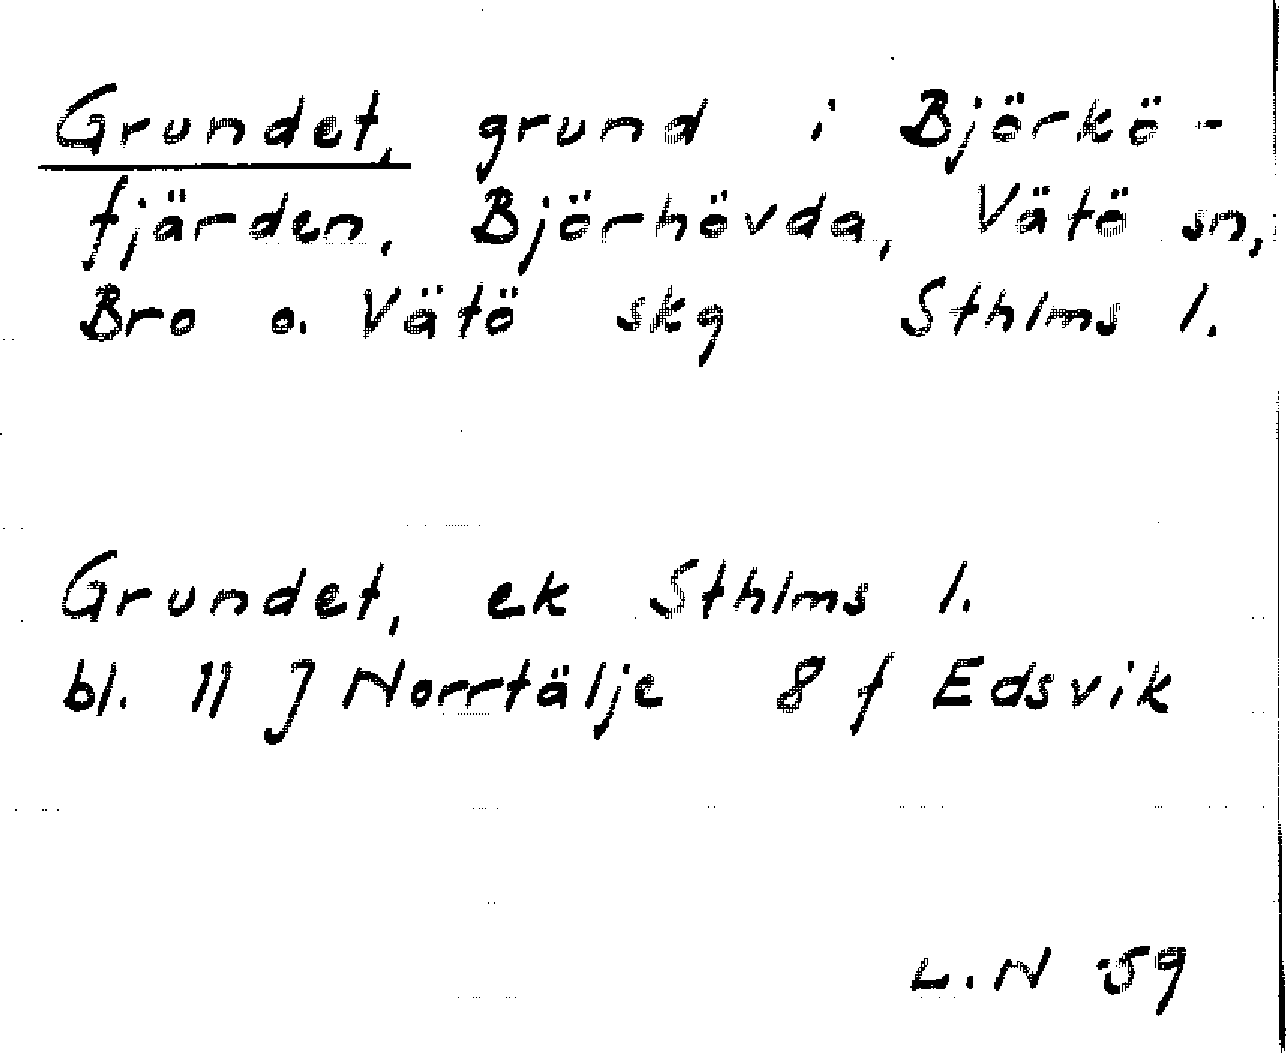 Grundet, grund i Björkö-
fjärden, Björhövda, Vätö sn,
Bro o. Vätö skg Sthlms l.
Grundet, ek Sthlms l.
bl. 11 J Norrtälje 8 f Edsvik
L.N 59